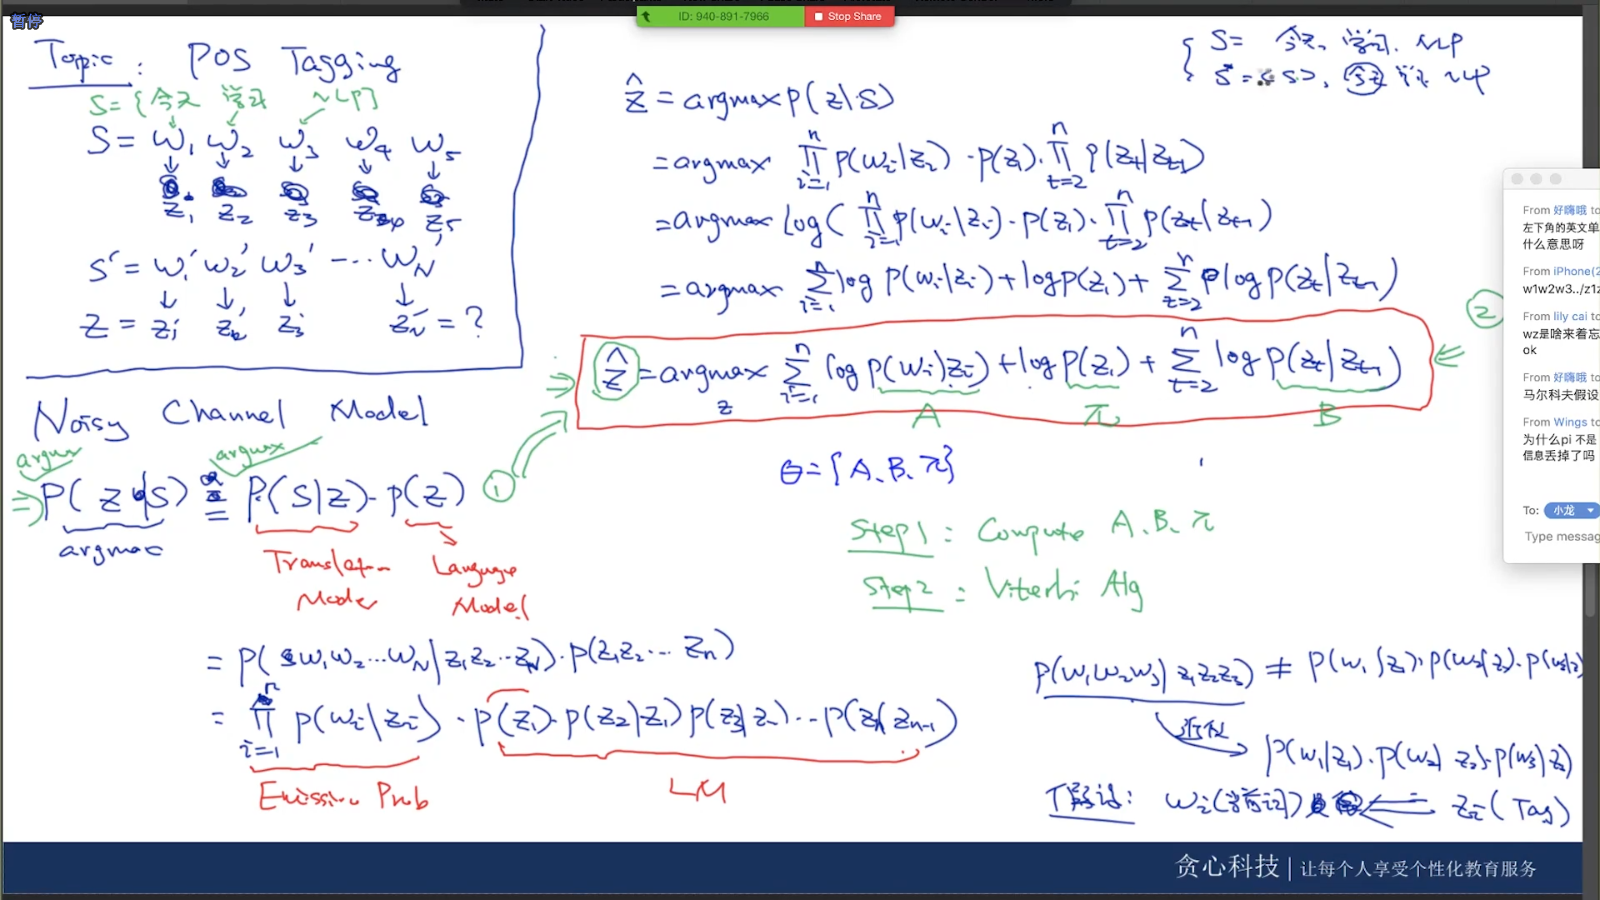 暂停
ID: 940-891-7966 Stop Share
Topic: POS Tagging
S={今天 学习 NLP}
S= w₁ w₂ w₃ w₄ w₅
z₁ z₂ z₃ z₄ z₅
S'= w₁' w₂' w₃' ... w_N'
Z = z₁' z₂' z₃' z_N' = ?
Noisy Channel Model
argmax argmax
P(z|S) = P(S|Z)·p(Z) ①
argmax
Translation Model
Language Model
= P(w₁w₂...w_N|z₁z₂...z_N)·p(z₁z₂...z_n)
= ∏ᵢ₌₁ⁿ p(wᵢ|zᵢ)·p(z₁)·p(z₂|z₁)p(z₃|z₂)...p(zₙ|zₙ₋₁)
Emission Prob
LM
S= 今天, 学习, NLP
今天 学习 NLP
ẑ = argmax p(z|S)
=argmax ∏ᵢ₌₁ⁿ p(wᵢ|zᵢ)·p(z₁)·∏ₜ₌₂ⁿ p(zₜ|zₜ₋₁)
=argmax log(∏ᵢ₌₁ⁿ p(wᵢ|zᵢ)·p(z₁)·∏ₜ₌₂ⁿ p(zₜ|zₜ₋₁)
=argmax ∑ᵢ₌₁ⁿ log p(wᵢ|zᵢ)+log p(z₁)+∑ₜ₌₂ⁿ log p(zₜ|zₜ₋₁)
②
ẑ=argmax ∑ᵢ₌₁ⁿ log p(wᵢ|zᵢ)+log p(z₁)+∑ₜ₌₂ⁿ log p(zₜ|zₜ₋₁)
z
A π B
θ={A、B、π}
Step1: Compute A、B、π
Step2: Viterbi Alg
p(w₁w₂w₃|z₁z₂z₃) ≠ p(w₁|z₁)·p(w₂|z₂)·p(w₃|z₃)
近似
p(w₁|z₁)·p(w₂|z₂)·p(w₃|z₃)
wᵢ(当前词) ⇐ zᵢ(Tag)
From 好嗨哦 to
左下角的英文单
什么意思呀
From iPhone(2
w1w2w3../z1z
From lily cai to
wz是啥来着忘
ok
From 好嗨哦 to
马尔科夫假设
From Wings to
为什么pi 不是
信息丢掉了吗
To: 小龙
Type messag
贪心科技 | 让每个人享受个性化教育服务